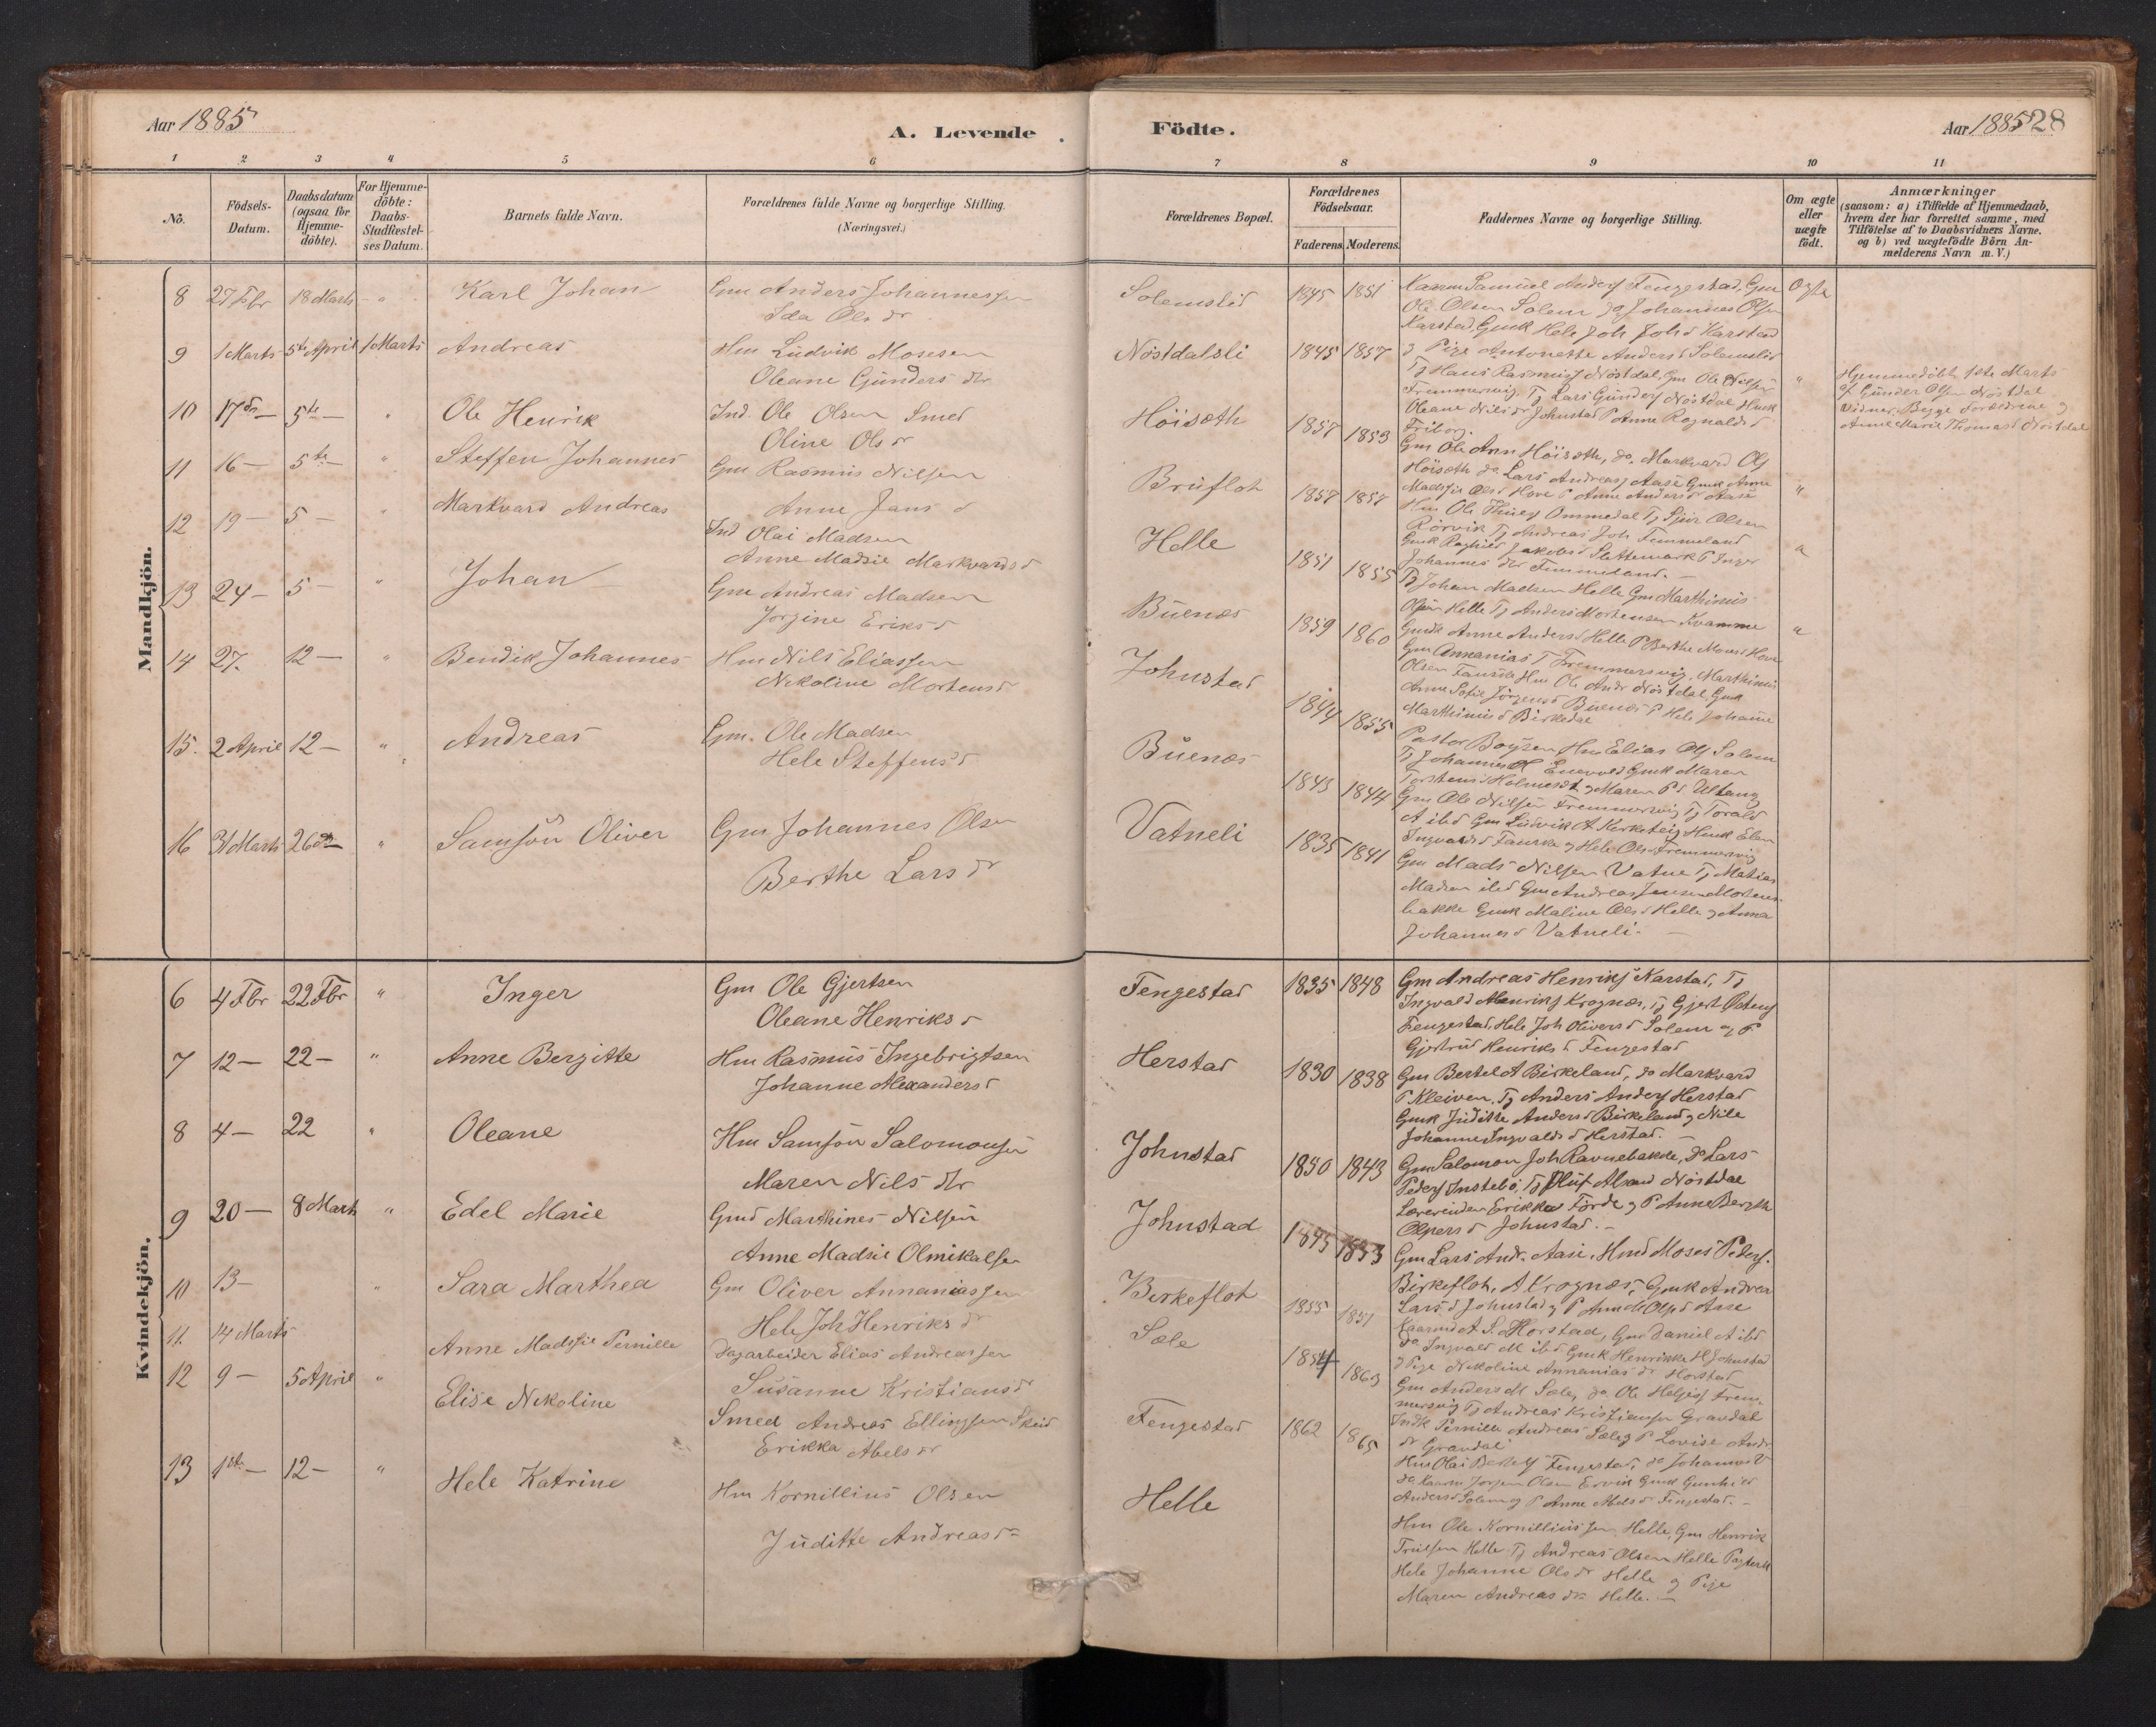 Aar 1885
A. Levende
Födte.
Aar 1885 28
1 2 3 4 5 6 7 8 9 10 11
No.
Födsels-
Datum.
Daabsdatum
(ogsaa for
Hjemme-
döbte).
For Hjemme-
döbte:
Daabs-
Stadfæstel-
ses Datum.
Barnets fulde Navn.
Forældrenes fulde Navne og borgerlige Stilling.
(Næringsvei.)
Forældrenes Bopæl.
Forældrenes
Födselsaar.
Faderens Moderens
Faddernes Navne og borgerlige Stilling.
Om ægte
eller
uægte
födt.
Anmærkninger
(saasom: a) i Tilfælde af Hjemmedaab,
hvem der har forrettet samme, med
Tilföielse af to Daabsvidners Navne.
og b) ved uægtefödte Börn An-
melderens Navn m. V.)
Mandkjön.
8 27 Fbr 18 Marts " Karl Johan
Gm Anders Johannessen
Ida Ols dr
Solemslid 1845 1851
Samuel Anders Fengestad, Gm
Ole Olsen Solem do Johannes Ols
Karstad Gmk Hele Joh Joh d Karstad
g Pige Antonette Anders d Solemslid
Ægte
9 1 Marts 5te April 1 Marts Andreas
Hm Ludvik Mosesen
Oleane Gunders dtr
Nöstdalsli 1845 1857
Tj Hans Rasmus Nöstdal, Gm Ole Nilsen
Fremmervig, Tj Lars Gunders Nöstdal Hmk
Oleane Nils dr Johnstad P Anne Ragnalds d
Friborg.
"
Hjemmedöbt 1ste Marts
af Gunder Olsen Nöstdal
Vidner: Begge Forældrene g
Anne Marie Thomas d Nöstdal
10 17de — 5te — " Ole Henrik
Ind. Ole Olsen Smed
Oline Ols dr
Höisæth 1857 1853
Gm Ole Ann Höisæth, do. Markvard Ols
Höisæth do Lars Andreas Aase Gmk Anne
Madsie Ols d Hove P Anne Anders d Aase
"
11 16 — 5te — " Steffen Johannes
Gm Rasmus Nilsen
Anne Jans d
Brufloh 1857 1857
Hm Ole Ommedal Tj Sjur Olsen
Rörvik Tj Andreas Joh Femmeland
Gmk Ragnild Jakobs d Slettemark P Inger
Johannes dtr Femmeland. —
"
12 19 — 5 — " Markvard Andreas
Ind Olai Madsen
Anne Madsie Markvards d
Helle 1851 1855
Tj Johan Madsen Helle Gm Marthinus
Olsen Helle Tj Anders Mortensen Kvamme
Gmk Anne Anders d Helle P Berthe Mons d Hove
"
13 24 — 5 — " Johan
Gm Andreas Madsen
Jorgine Eriks d
Buenæs 1859 1860
Gm Annanias T Fremmersvig, Marthinus
Olsen Fauske Hm Ole Andr Nöstdal Gmk
Anne Sofie Jörgens d Buenæs P Hele Johanne
Marthinus d Birkedal
14 27. 12 — " Bendik Johannes
Hm Nils Eliassen
Nikoline Mortens d
Johnstad 1844 1855
Pastor Boysen Hm Elias Ols Solem
Tj Johannes Enevold Gmk Maren
Torstens d g Maren P d Ultang
15. 2 April 12 — " Andreas
Gm. Ole Madsen
Hele Steffens d
Buenæs 1843 1844
Gm Ole Nilsen Fremmersvig Tj Torald
A ibd Gm Ludvik A Kirketeig Hmk Elen
Ingvalds d Fauske g Hele Ols d Fremmervig
16 31 Marts 26de " Samson Oliver
Gm Johannes Olsen
Berthe Lars dr
Vatneli 1835 1841
Gm Mads Nilsen Vatne Tj Matias
Madsen ibd Gm Andreas Jensen Mortens-
bakke Gmk Maline Ols d Helle g Anna
Johannes d Vatneli. —
Kvindekjön.
6 4 Fbr 22 Fbr " Inger
Gm Ole Gjertsen
Oleane Henriks d
Fengestad 1835 1848
Gm Andreas Henriks Karstad, Tj
Ingvald Henriks Krognæs, Tj Gjert Östens
Fengestad, Hele Joh Olivers d Solem og P
Gjertrud Henriks d Fengestad
7 12 — 22 — " Anne Bergitte
Hm Rasmus Ingebrigtsen
Johanne Alexanders d
Herstad 1830 1838
Gm Bertel A Birkeland, do Markvard
P Kleiven, Tj Anders Anders Herstad
Gmk Juditte Anders d Birkeland g Nile
Johanne Ingvalds d Herstad. —
8 4 — 22 " Oleane
Hm Samson Salomonsen
Maren Nils dtr
Johnstad 1850 1843
Gm Salomon Joh Ravnebakke, do Lars
Peders Instebö, Tj Oluf Nöstdal
Lærerinden Erikka Förde g P Anne Bergith
Olpers d Johnstad. —
9 20 — 8 Marts " Edel Marie
Gmd Marthines Nilsen
Anne Madsie Olmikalsen
Johnstad 1845 1853
Gm Lars Andr. Aase, Hmd Moses Peders.
Birkefloh, A Krognæs, Gmk Andrea
Lars d Johnstad g P Anne M Olps d Aase
10 13 — " Sara Marthea
Gm Oliver Annaniassen
Hele Joh Henriks dr
Birkefloh 1855 1851
Kaarmd A S. Horstad, Gm Daniel A ibd
do Ingvald M ibd Gmk Henrikke H Johnstad
g Pige Nikoline Annanias dr Horstad
11. 14 Marts Anne Madssie Pernille
Dagarbeider Elias Andreassen
Susanne Kristians dr
Sæle 1854 1863
Gm Anders M Sæle, do. Ole Helges Frem-
mersvig Tj Andreas Kristiansen Gravdal
Indk Pernille Andreas Sæle g P Lovise Andr
dr Gravdal
12 9 — 5 April " Elise Nikoline
Smed Andreas Ellingsen Skeid
Erikka Abels dr
Fengestad 1862 1865
Hm Olai Bertels Fengestad, do Johannes V
do Kaarm Jorgen Olsen Ervik Gmk Gunhild
Anders d Solem og P Anne Abels d Fengestad. —
13 1ste — 12 — " Hele Katrine
Hm Kornillius Olsen
Juditte Andreas dr
Helle
Hm Ole Kornilliussen Helle, Gm Henrik
Trulsen Helle Tj Andreas Olsen Helle
Hele Johanne Ols dr Helle g Pige
Maren Andreas dr Helle. —